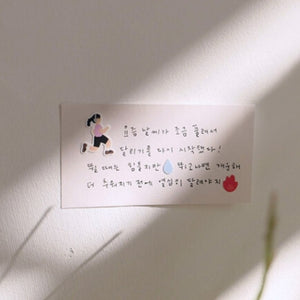 요즘 날씨가 조금 풀려서
달리기를 다시 시작했다!
뛸 때는 힘들지만 뛰고나면 개운해
더 추워지기 전에 열심히 달려야지